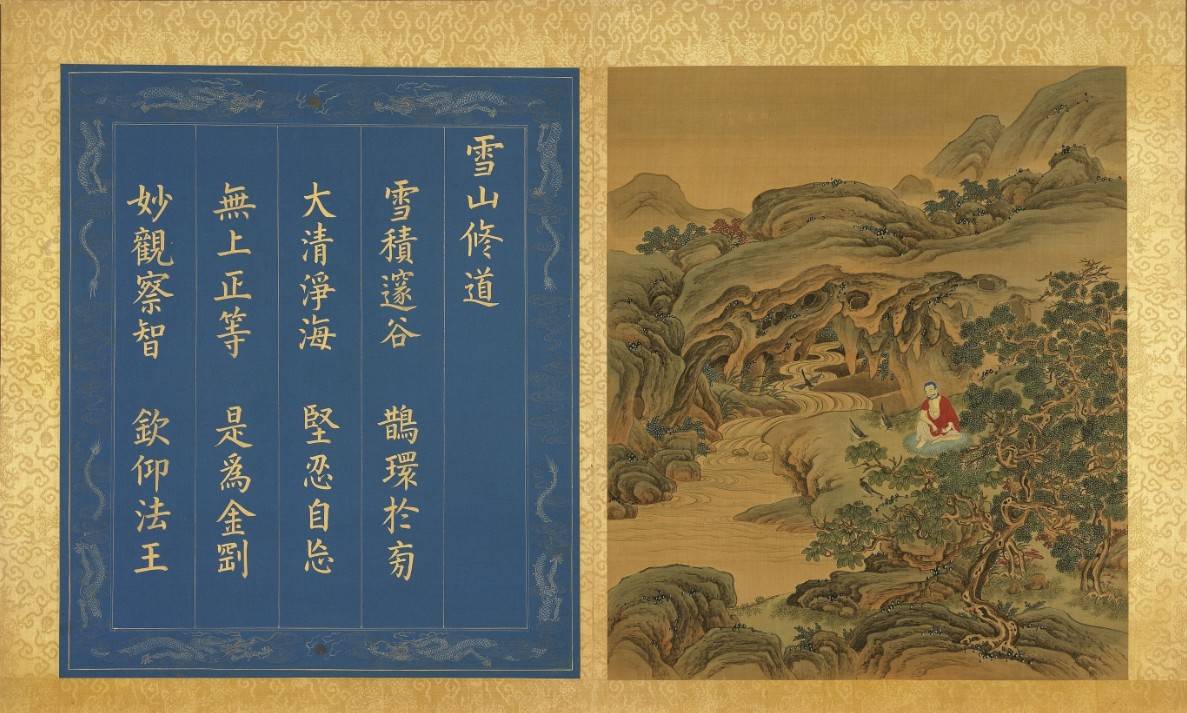 雪山修道
雪積邃谷 鵲環於旁
大清淨海 堅忍自忘
無上正等 是爲金剛
妙觀察智 欽仰法王